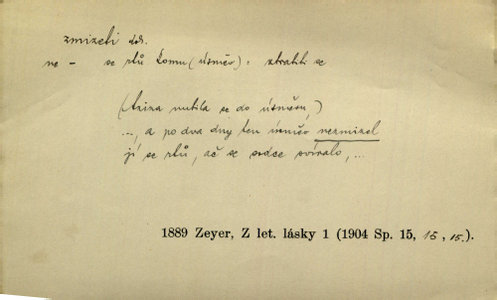 zmizeti dok.
ne - se rtů komu (úsměv): ztratiti se
(Aziza nutila se do úsměvu,)
..., a po dva dny ten úsměv nezmizel
jí se rtů, ač se srdce svíralo, ...
1889 Zeyer, Z let. lásky 1 (1904 Sp. 15, 15, 15.).